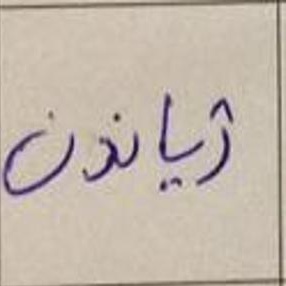 ژیاندن